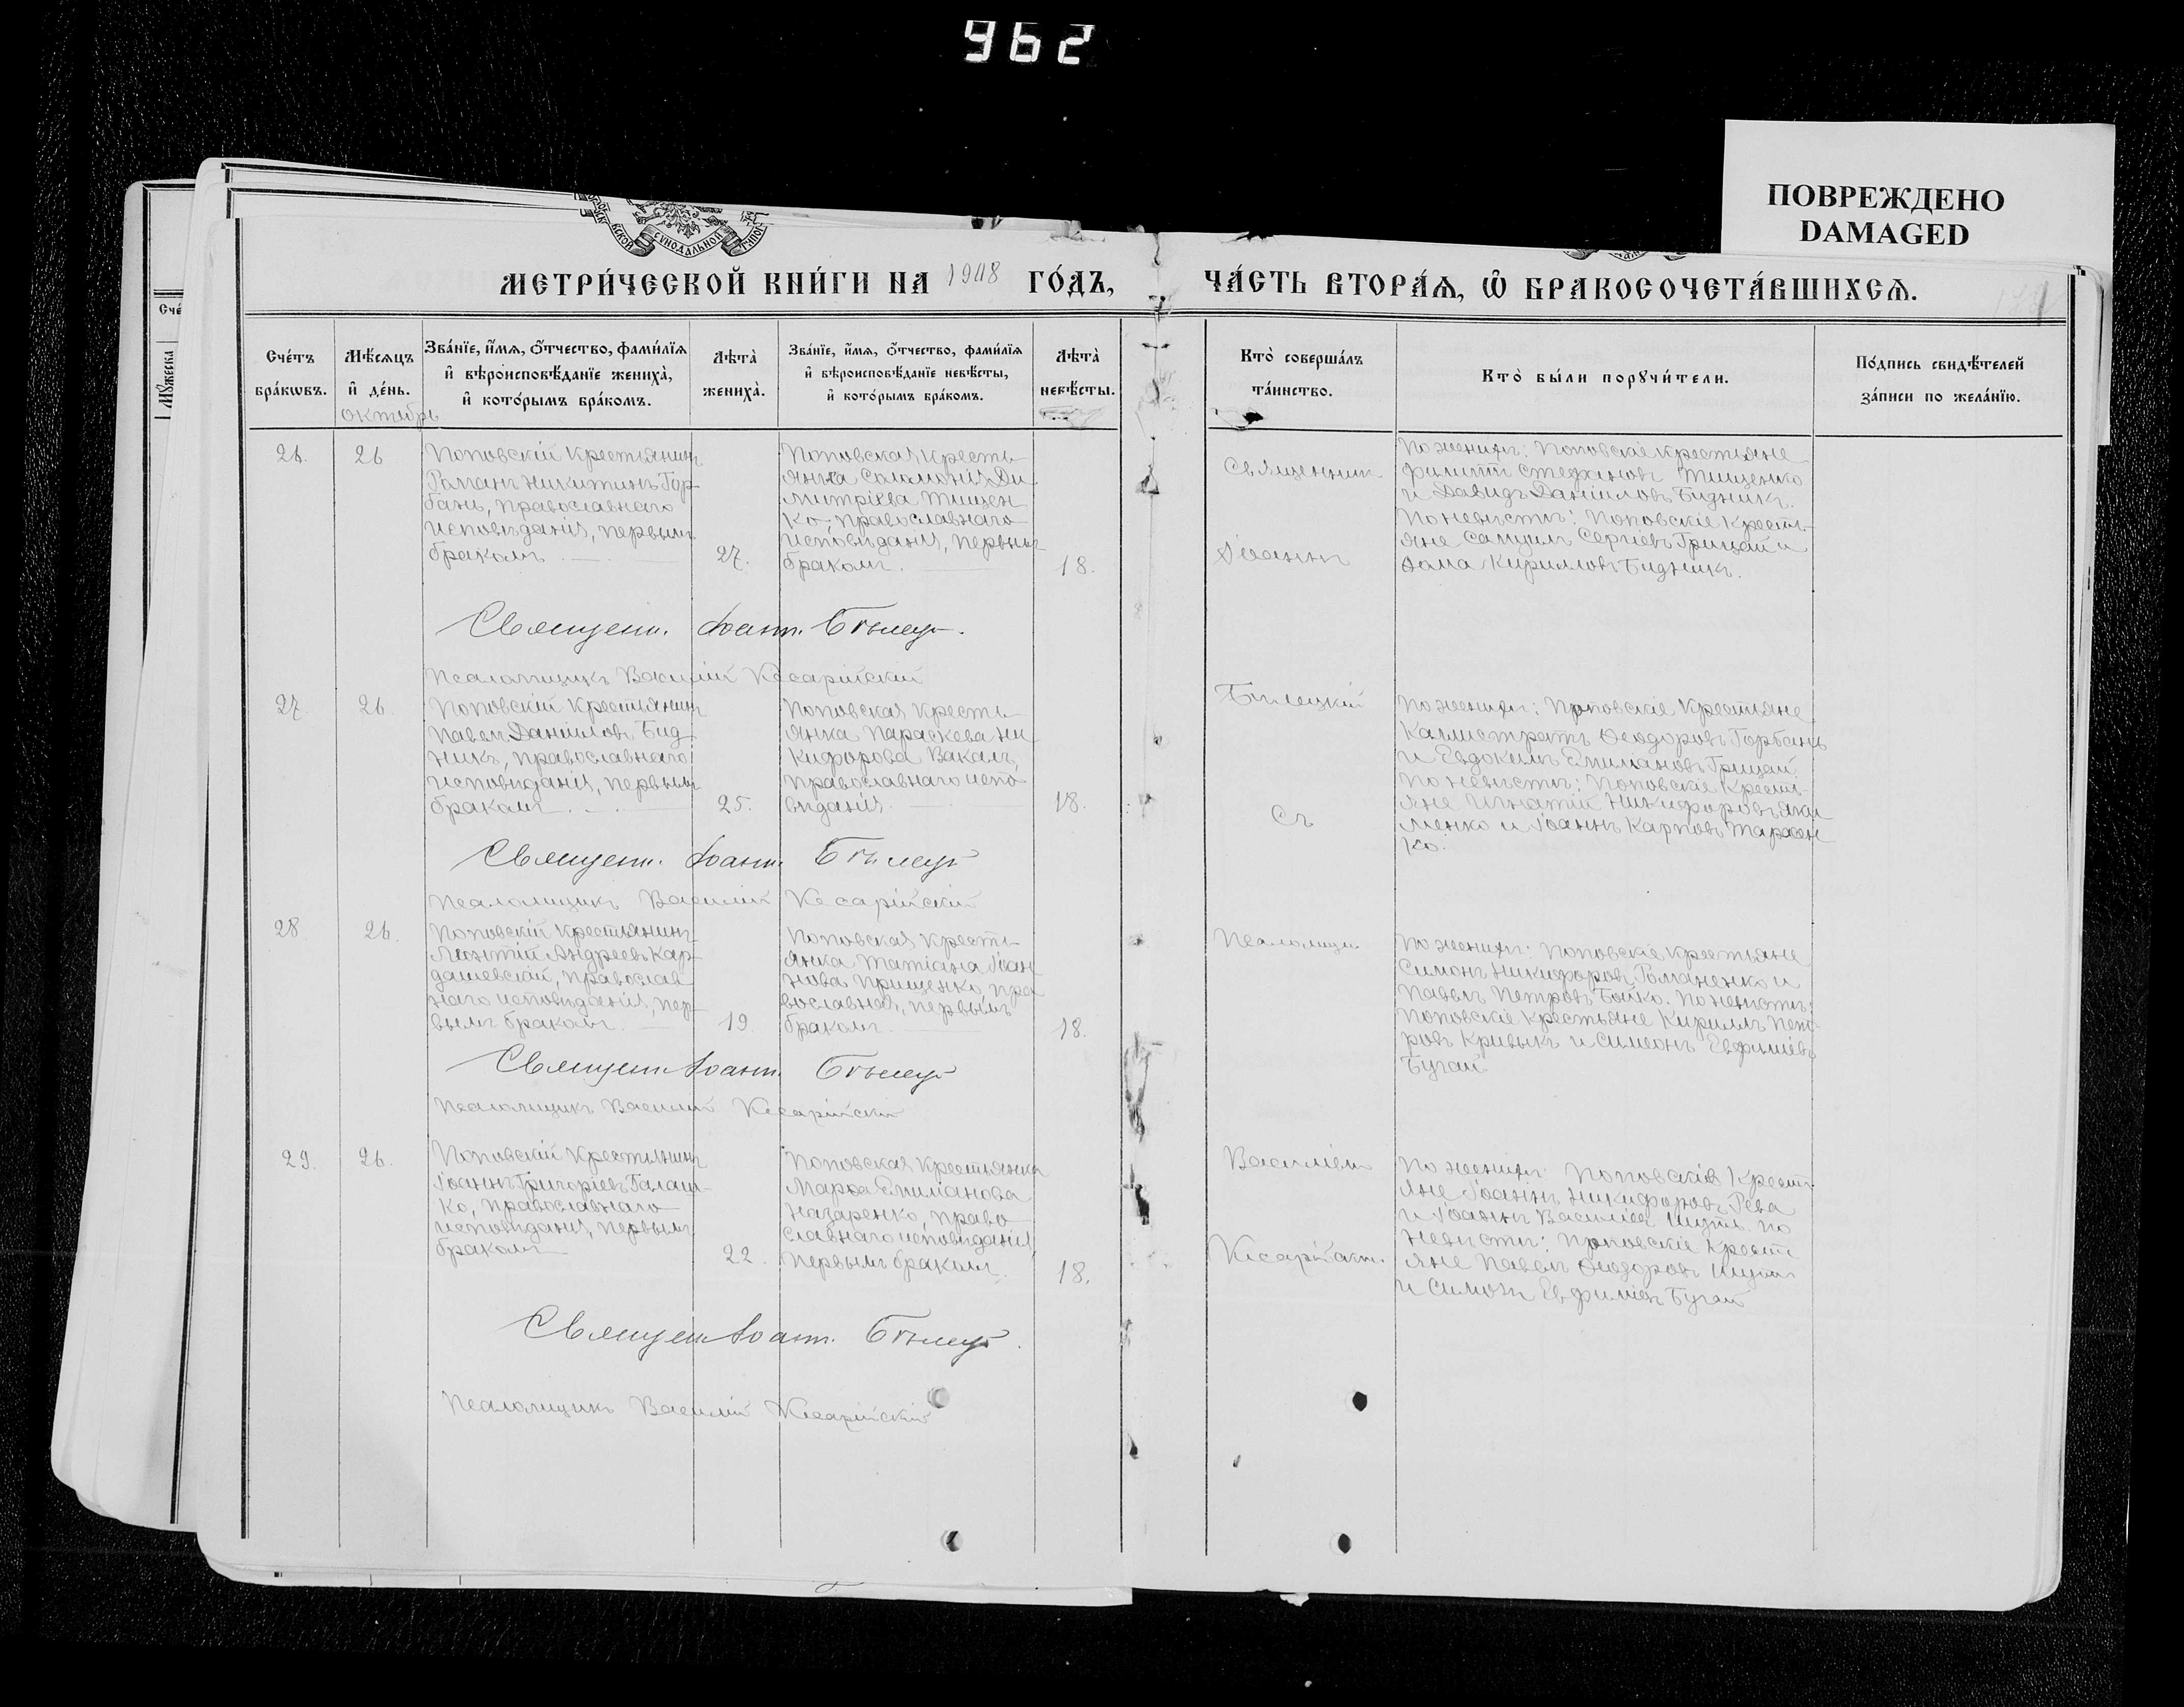 962
ПОВРЕЖДЕНО
DAMAGED
СѴНОДАЛЬНОЙ
МЕТРИ́ЧЕСКОЙ КНИ́ГИ НА 1908 ГО́ДЪ,
ЧА́СТЬ ВТОРА́Ѧ, Ѽ БРАКОСОЧЕТА́ВШИХСѦ.
Сче́тъ бра́кѡвъ.
Мѣ́сѧцъ и҆ де́нь.
октябрь
Зва́нїе, и҆́мѧ, ѻ҆́тчество, фами́лїѧ
и҆ вѣроисповѣ́данїе жениха̀,
и҆ кото́рымъ бра́комъ.
Лѣта̀ жениха̀.
Зва́нїе, и҆́мѧ, ѻ҆́тчество, фами́лїѧ
и҆ вѣроисповѣ́данїе невѣ́сты,
и҆ кото́рымъ бра́комъ.
Лѣта̀ невѣ́сты.
Кто̀ соверша́лъ
та́инство.
Кто̀ бы́ли порꙋчи́тели.
По́дпись свидѣ́телей
за́писи по жела́нїю.
26.
26
Поповскій крестьянинъ
Романъ Никитинъ Гор-
бань, православнаго
исповѣданія, первымъ
бракомъ.
27.
Поповская кресть-
янка Соломонія Ди-
митріева Тищен
ко, православнаго
исповѣданія, первымъ
бракомъ.
18.
Священникъ
Іоаннъ
По женихѣ: Поповскіе крестьяне
Филиппъ Стефановъ Тищенко
и Давидъ Даніиловъ Бидникъ.
По невѣстѣ: Поповскіе кресть-
яне Самуилъ Сергіевъ Грицай и
Ѳома Кирилловъ Бидникъ.
Священ. Іоанн. Бѣлец.
Псаломщикъ Василій Кесарійскій
27.
26.
Поповскій крестьянинъ
Павелъ Даніиловъ Бид
никъ, православнаго
исповѣданія, первымъ
бракомъ.
25.
Поповская кресть-
янка Параскева Ни
кифорова Вакалъ,
православнаго испо
вѣданія.
18.
Билецкій
Съ
По женихѣ: Поповскіе крестьяне
Каллистратъ Ѳеодоровъ Горбань
и Евдокимъ Емиліановъ Грицай.
По невѣстѣ: Поповскіе кресть-
яне Игнатій Никифоровъ Яки
менко и Іоаннъ Карповъ Тарасен
ко.
Священ. Іоанн. Бѣлец
Псаломщикъ Василій Кесарійскій
28
26.
Поповскій крестьянинъ
Леонтій Андреевъ Кар-
дашевскій, православ
наго исповѣданія, пер-
вымъ бракомъ.
19.
Поповская кресть-
янка Татіана Іоан
нова Прищенко, пра
вославнаго, первымъ
бракомъ.
18.
Псаломщи
По женихѣ: Поповскіе крестьяне
Симонъ Никифоровъ Романенко и
Павелъ Петровъ Бойко. По невѣстѣ:
Поповскіе крестьяне Кириллъ Пет-
ровъ Кривыкъ и Симеонъ Евфиміевъ
Бугай
Священ Іоанн. Бѣлец
Псаломщикъ Василій Кесарійскій
29.
26.
Поповскій крестьянинъ
Іоаннъ Григоріевъ Галаш-
ко, православнаго
исповѣданія, первымъ
бракомъ
22.
Поповская крестьянка
Марѳа Емиліанова
Назаренко, право
славнаго исповѣданія,
первымъ бракомъ.
18.
Василіем
Кесарійским.
По женихѣ: Поповскіе кресть
яне Іоаннъ Никифоровъ Рева
и Іоаннъ Василіев Шуть. По
невѣстѣ: Поповскіе кресть
яне Павелъ Ѳеодоровъ Шуть
и Симонъ Евфиміев Бугай
Священ Іоанн. Бѣлец.
Псаломщикъ Василій Кесарійскій